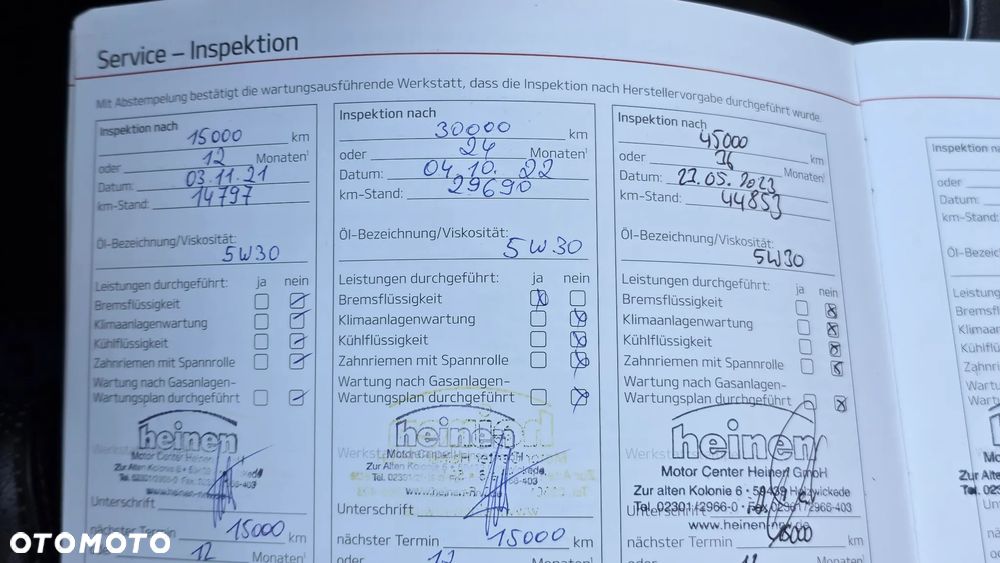 Service – Inspektion
Mit Abstempelung bestätigt die wartungsausführende Werkstatt, dass die Inspektion nach Herstellervorgabe durchgeführt wurde.
Inspektion nach
15000 km
oder 12 Monaten¹
Datum: 03.11.21
km-Stand: 14797
Öl-Bezeichnung/Viskosität:
5W30
Leistungen durchgeführt: ja nein
Bremsflüssigkeit
Klimaanlagenwartung
Kühlflüssigkeit
Zahnriemen mit Spannrolle
Wartung nach Gasanlagen-
Wartungsplan durchgeführt
heinen
Motor Center Heinen
Zur Alten Kolonie 6
Unterschrift
nächster Termin 15000 km
12 Monaten¹
Inspektion nach
30000 km
oder 24 Monaten¹
Datum: 04.10.22
km-Stand: 29690
Öl-Bezeichnung/Viskosität:
5W30
Leistungen durchgeführt: ja nein
Bremsflüssigkeit
Klimaanlagenwartung
Kühlflüssigkeit
Zahnriemen mit Spannrolle
Wartung nach Gasanlagen-
Wartungsplan durchgeführt
heinen
Zur Alten Kolonie 6
Unterschrift
nächster Termin 15000 km
oder 12 Monaten¹
Inspektion nach
45000 km
oder 36 Monaten¹
Datum: 22.05.2023
km-Stand: 44853
Öl-Bezeichnung/Viskosität:
5W30
Leistungen durchgeführt: ja nein
Bremsflüssigkeit
Klimaanlagenwartung
Kühlflüssigkeit
Zahnriemen mit Spannrolle
Wartung nach Gasanlagen-
Wartungsplan durchgeführt
heinen
Motor Center Heinen GmbH
Zur alten Kolonie 6 · 59439 Holzwickede
Tel. 02301/2966-0 · Fax 02301/2966-403
Unterschrift
www.heinen-nrw.de
nächster Termin 15000 km
oder Monaten¹
Inspektion
oder
Datum:
km-Stand:
OTOMOTO